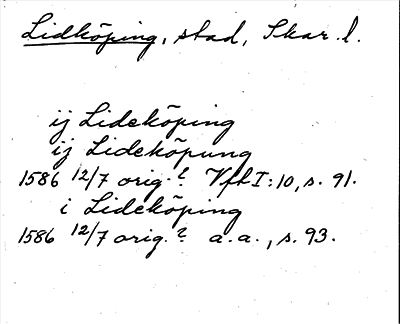 Lidköping, stad, Skar. l.
ij Lideköping
ij Lideköpung
1586 12/7 orig.? Vft I:10, s. 91.
i Lideköping
1586 12/7 orig.? a.a., s. 93.